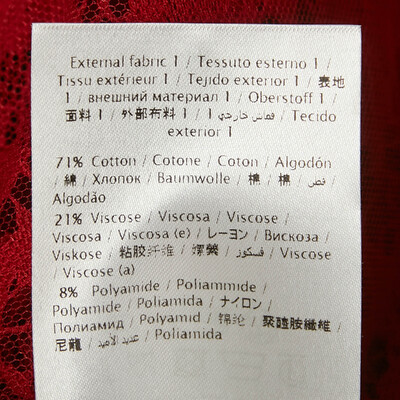 External fabric 1 / Tessuto esterno 1 /
Tissu extérieur 1 / Tejido exterior 1 / 表地
1 / внешний материал 1 / Oberstoff 1 /
面料 1 / 外部布料 1 / قماش خارجي 1 / Tecido
exterior 1
71% Cotton / Cotone / Coton / Algodón
/ 綿 / Хлопок / Baumwolle / 棉 / 棉 /
Algodão
21% Viscose / Viscosa / Viscose /
Viscosa / Viscosa (e) / レーヨン / Вискоза /
Viskose / 粘胶纤维 / 嫘縈 / فسكوز / Viscose
/ Viscose (a)
8% Polyamide / Poliammide /
Polyamide / Poliamida / ナイロン /
Полиамид / Polyamid / 锦纶 / 聚醯胺纖維 /
尼龍 / عديد الأميد / Poliamida